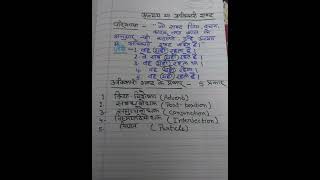 अव्यय या अविकारी शब्द
परिभाषा - "जो शब्द लिंग, वचन,
कारक तथा काल के
अनुसार नहीं बदलते उन्हें अव्यय
या अविकारी शब्द कहते हैं।
1. वह (यहाँ) रहता है।
2. वे सब (यहाँ) रहते हैं।
3. वह (यहाँ) रहता था।
4. वह (यहाँ) रहेगा।
5. वह (यहाँ) रहती है।
अविकारी शब्द के प्रकार - 5 प्रकार
1. क्रिया-विशेषण (Adverb)
2. सम्बन्धबोधक (Post-position)
3. समुच्चयबोधक (Conjunction)
4. विस्मयादिबोधक (Interjection)
5. निपात (Particle)